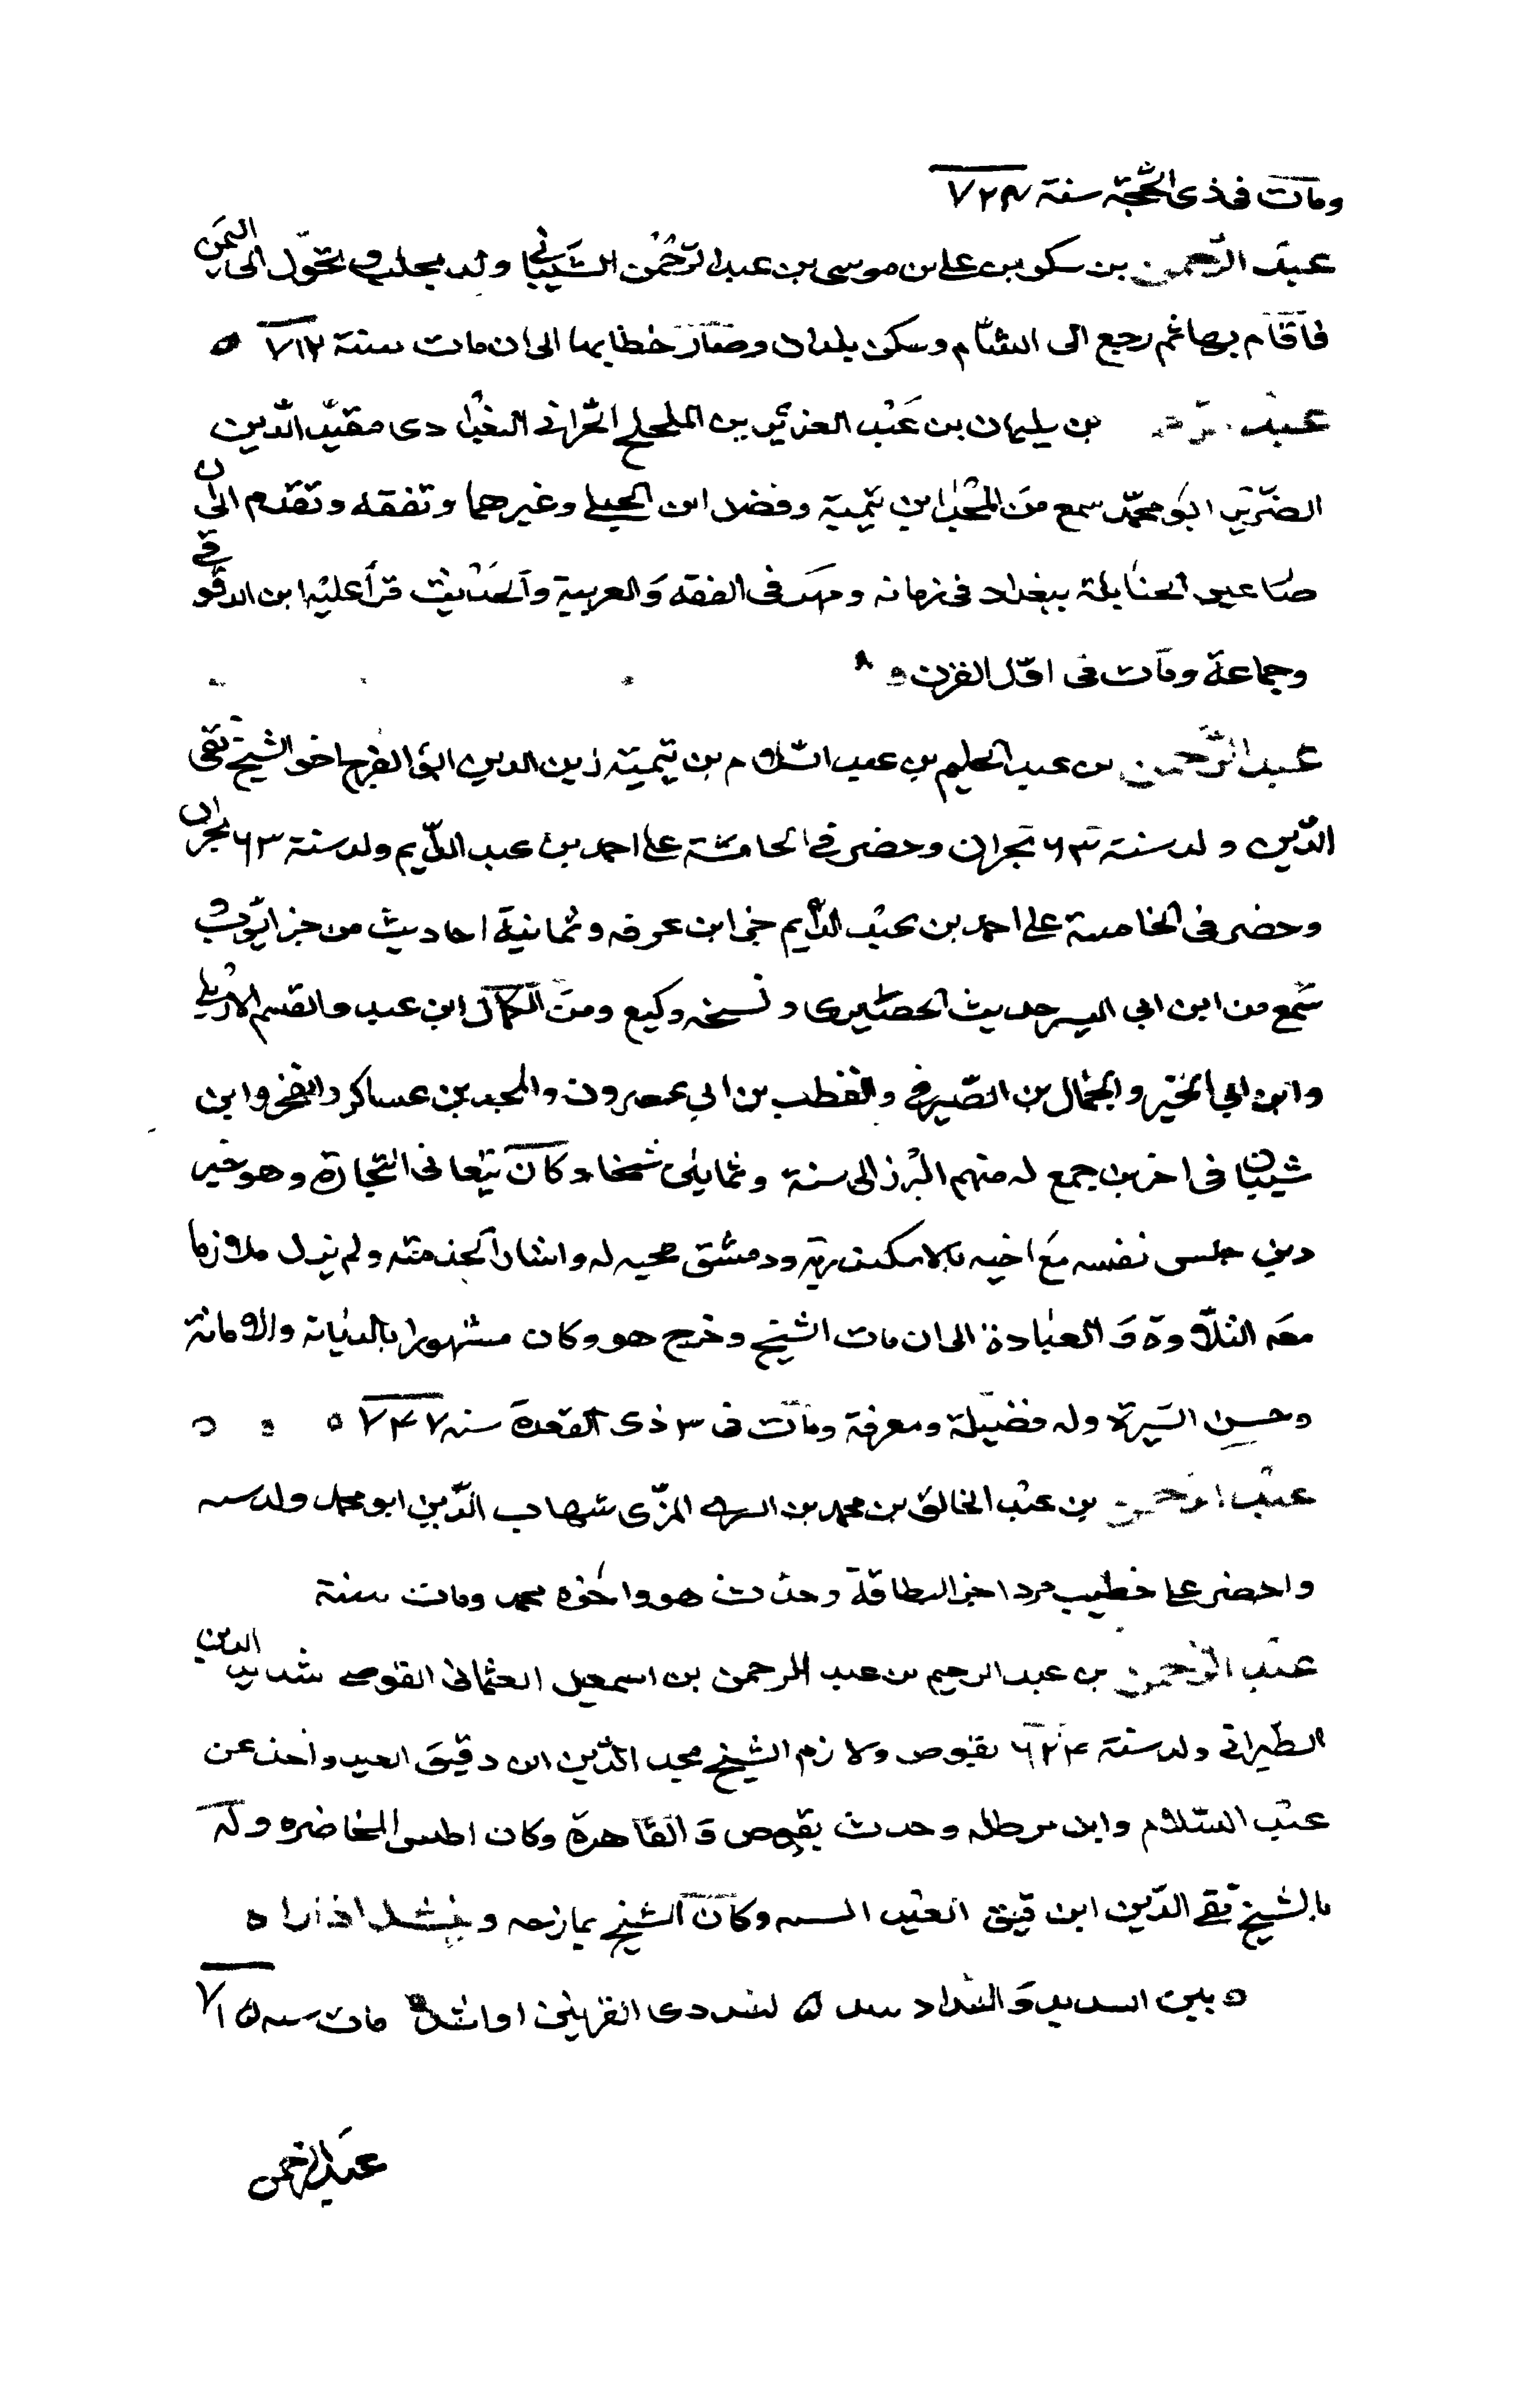 ومات فى ذى الحجة سنة ٧٢٨
عبد الرحمن بن سكر بن على بن موسى بن عبد الرحمن الشيبانى ولد بحلب وتحول الى اليمن
فاقام بها ثم رجع الى الشام وسكن بلدان وصار خطابها الى ان مات سنة ٧١٢
عبد بن سليمان بن عبد العزيز بن الملجلج الحرانى البغدادى مفيد الدين
الضرير ابو محمد سمع من المجد ابن تيمية وفضل ابن الجيلى وغيرهما وتفقه وتقدم الى ان
صار عين الحنابلة ببغداد فى زمانه ومهر فى الفقه والعربية والحديث قرأ عليه ابن الدقوقى
وجماعة ومات فى اول القرن ٨
عبد الرحمن بن عبد الحليم بن عبد السلام بن تيمية زين الدين ابو الفرج اخو الشيخ تقى
الدين ولد سنة ٦٣ بحران وحضر فى الخامسة على احمد بن عبد الدايم ولد سنة ٦٣ بحران
وحضر فى الخامسة على احمد بن عبد الدايم جز ابن عرفه وثمانية احاديث من جز ايوب
سمع من ابن ابى اليسر حديث الحصايرى ونسخه وكيع ومن الكمال ابن عبد والقسم الاربلى
وابن ابى الخير والجمال بن الصيرفى والقطب بن ابى عصرون والمجد بن عساكر والفخر وابن
شيبان فى اخرين جمع له منهم البرزالى ستة وثمانين شيخا وكان يتعانى التجارة وهو خير
دين حبس نفسه مع اخيه بالاسكندرية ودمشق محبه له وايثارا لخدمته ولم يزل ملازما
معه التلاوة والعبادة الى ان مات الشيخ وخرج هو وكان مشهورا بالديانة والامانة
وحسن السيرة وله فضيلة ومعرفة ومات فى ٣ ذى القعدة سنه ٧٤٧
عبد الرحمن بن عبد الخالق بن محمد بن المزى شهاب الدين ابو محمد ولد سنه
واحضر على خطيب مردا جز البطاقة وحدث هو واخوه محمد ومات سنة
عبد الرحمن بن عبد الرحيم بن عبد الرحمن بن اسمعيل العثمانى القوصى شديد الدين
ولد سنة ٦٢٤ بقوص ولازم الشيخ مجد الدين ابن دقيق العيد واخذ عن
عبد السلام وابن وحدث بقوص والقاهرة وكان المحاضره وله
بالشيخ تقى الدين ابن قيق العيد وكان الشيخ يمازحه وينشد اذا راه
بين السديد والسداد سد كسد ذى القرنين او اشد مات سنه ٧١٥
عبد الرحمن